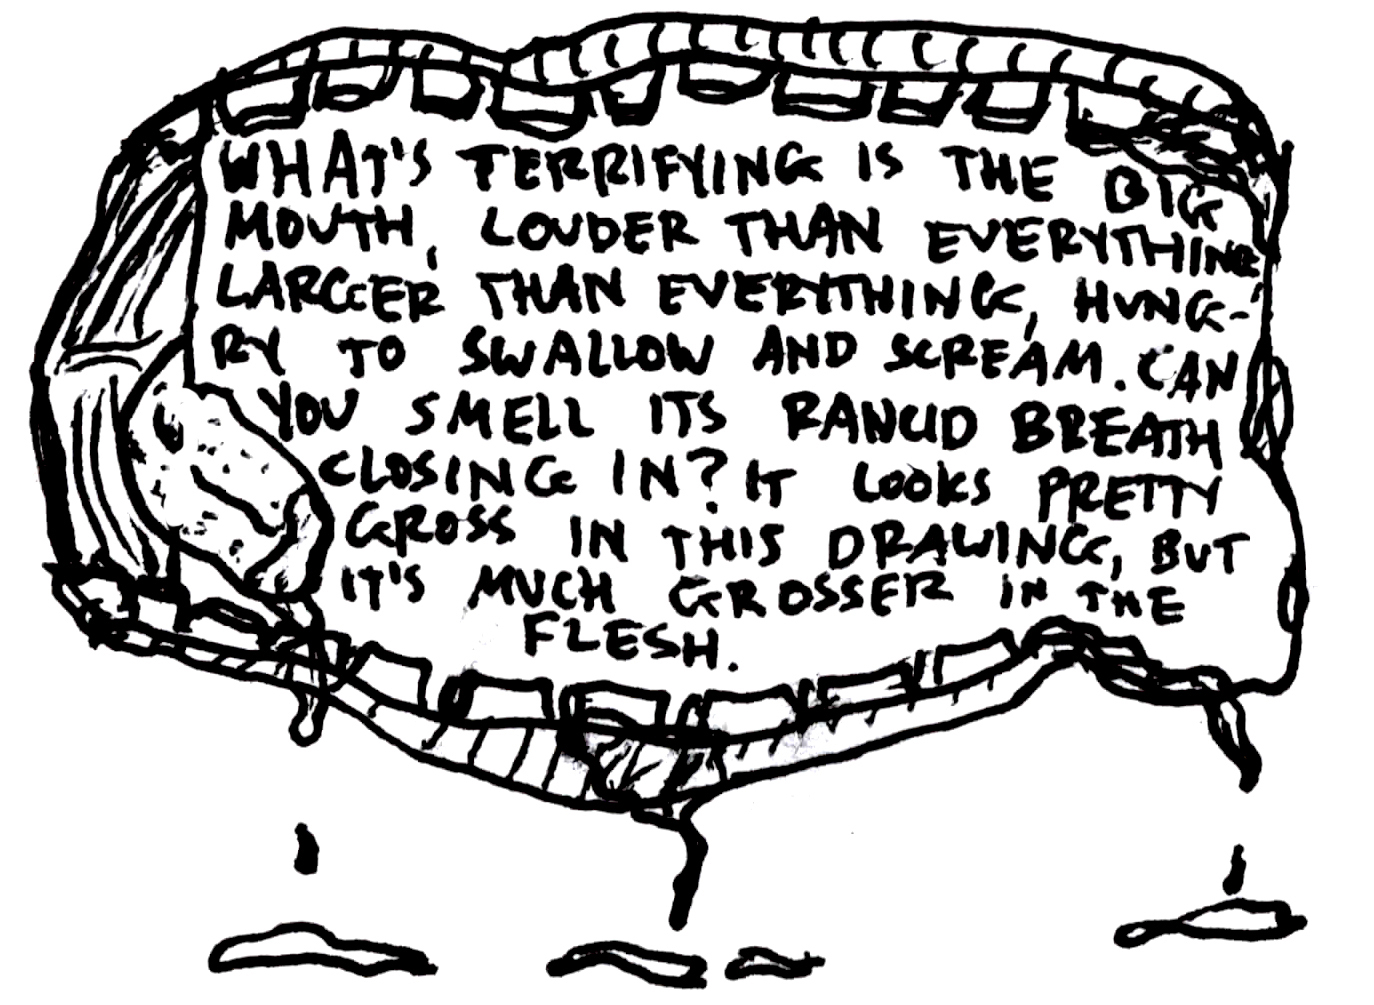 WHAT'S TERRIFYING IS THE BIG
MOUTH, LOUDER THAN EVERYTHING
LARGER THAN EVERYTHING, HUNG-
RY TO SWALLOW AND SCREAM. CAN
YOU SMELL ITS RANCID BREATH
CLOSING IN? IT LOOKS PRETTY
GROSS IN THIS DRAWING, BUT
IT'S MUCH GROSSER IN THE
FLESH.